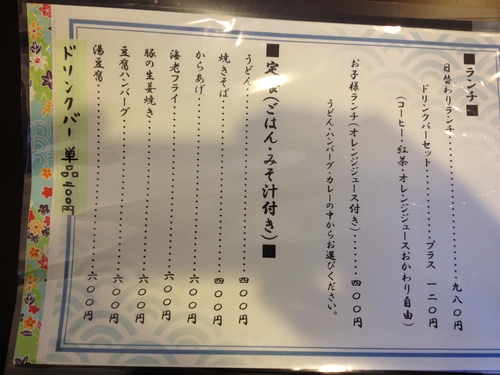 ■ランチ■
日替わりランチ……………九八〇円
ドリンクバーセット……プラス 一二〇円
(コーヒー・紅茶・オレンジジュースおかわり自由)
お子様ランチ(オレンジジュース付き)……四〇〇円
うどん・ハンバーグ・カレーの中からお選びください。
■定食(ごはん・みそ汁付き)■
うどん……………四〇〇円
焼きそば……………四〇〇円
からあげ……………六〇〇円
海老フライ……………六〇〇円
豚の生姜焼き……………六〇〇円
豆腐ハンバーグ……………六〇〇円
湯豆腐……………六〇〇円
ドリンクバー 単品二〇〇円